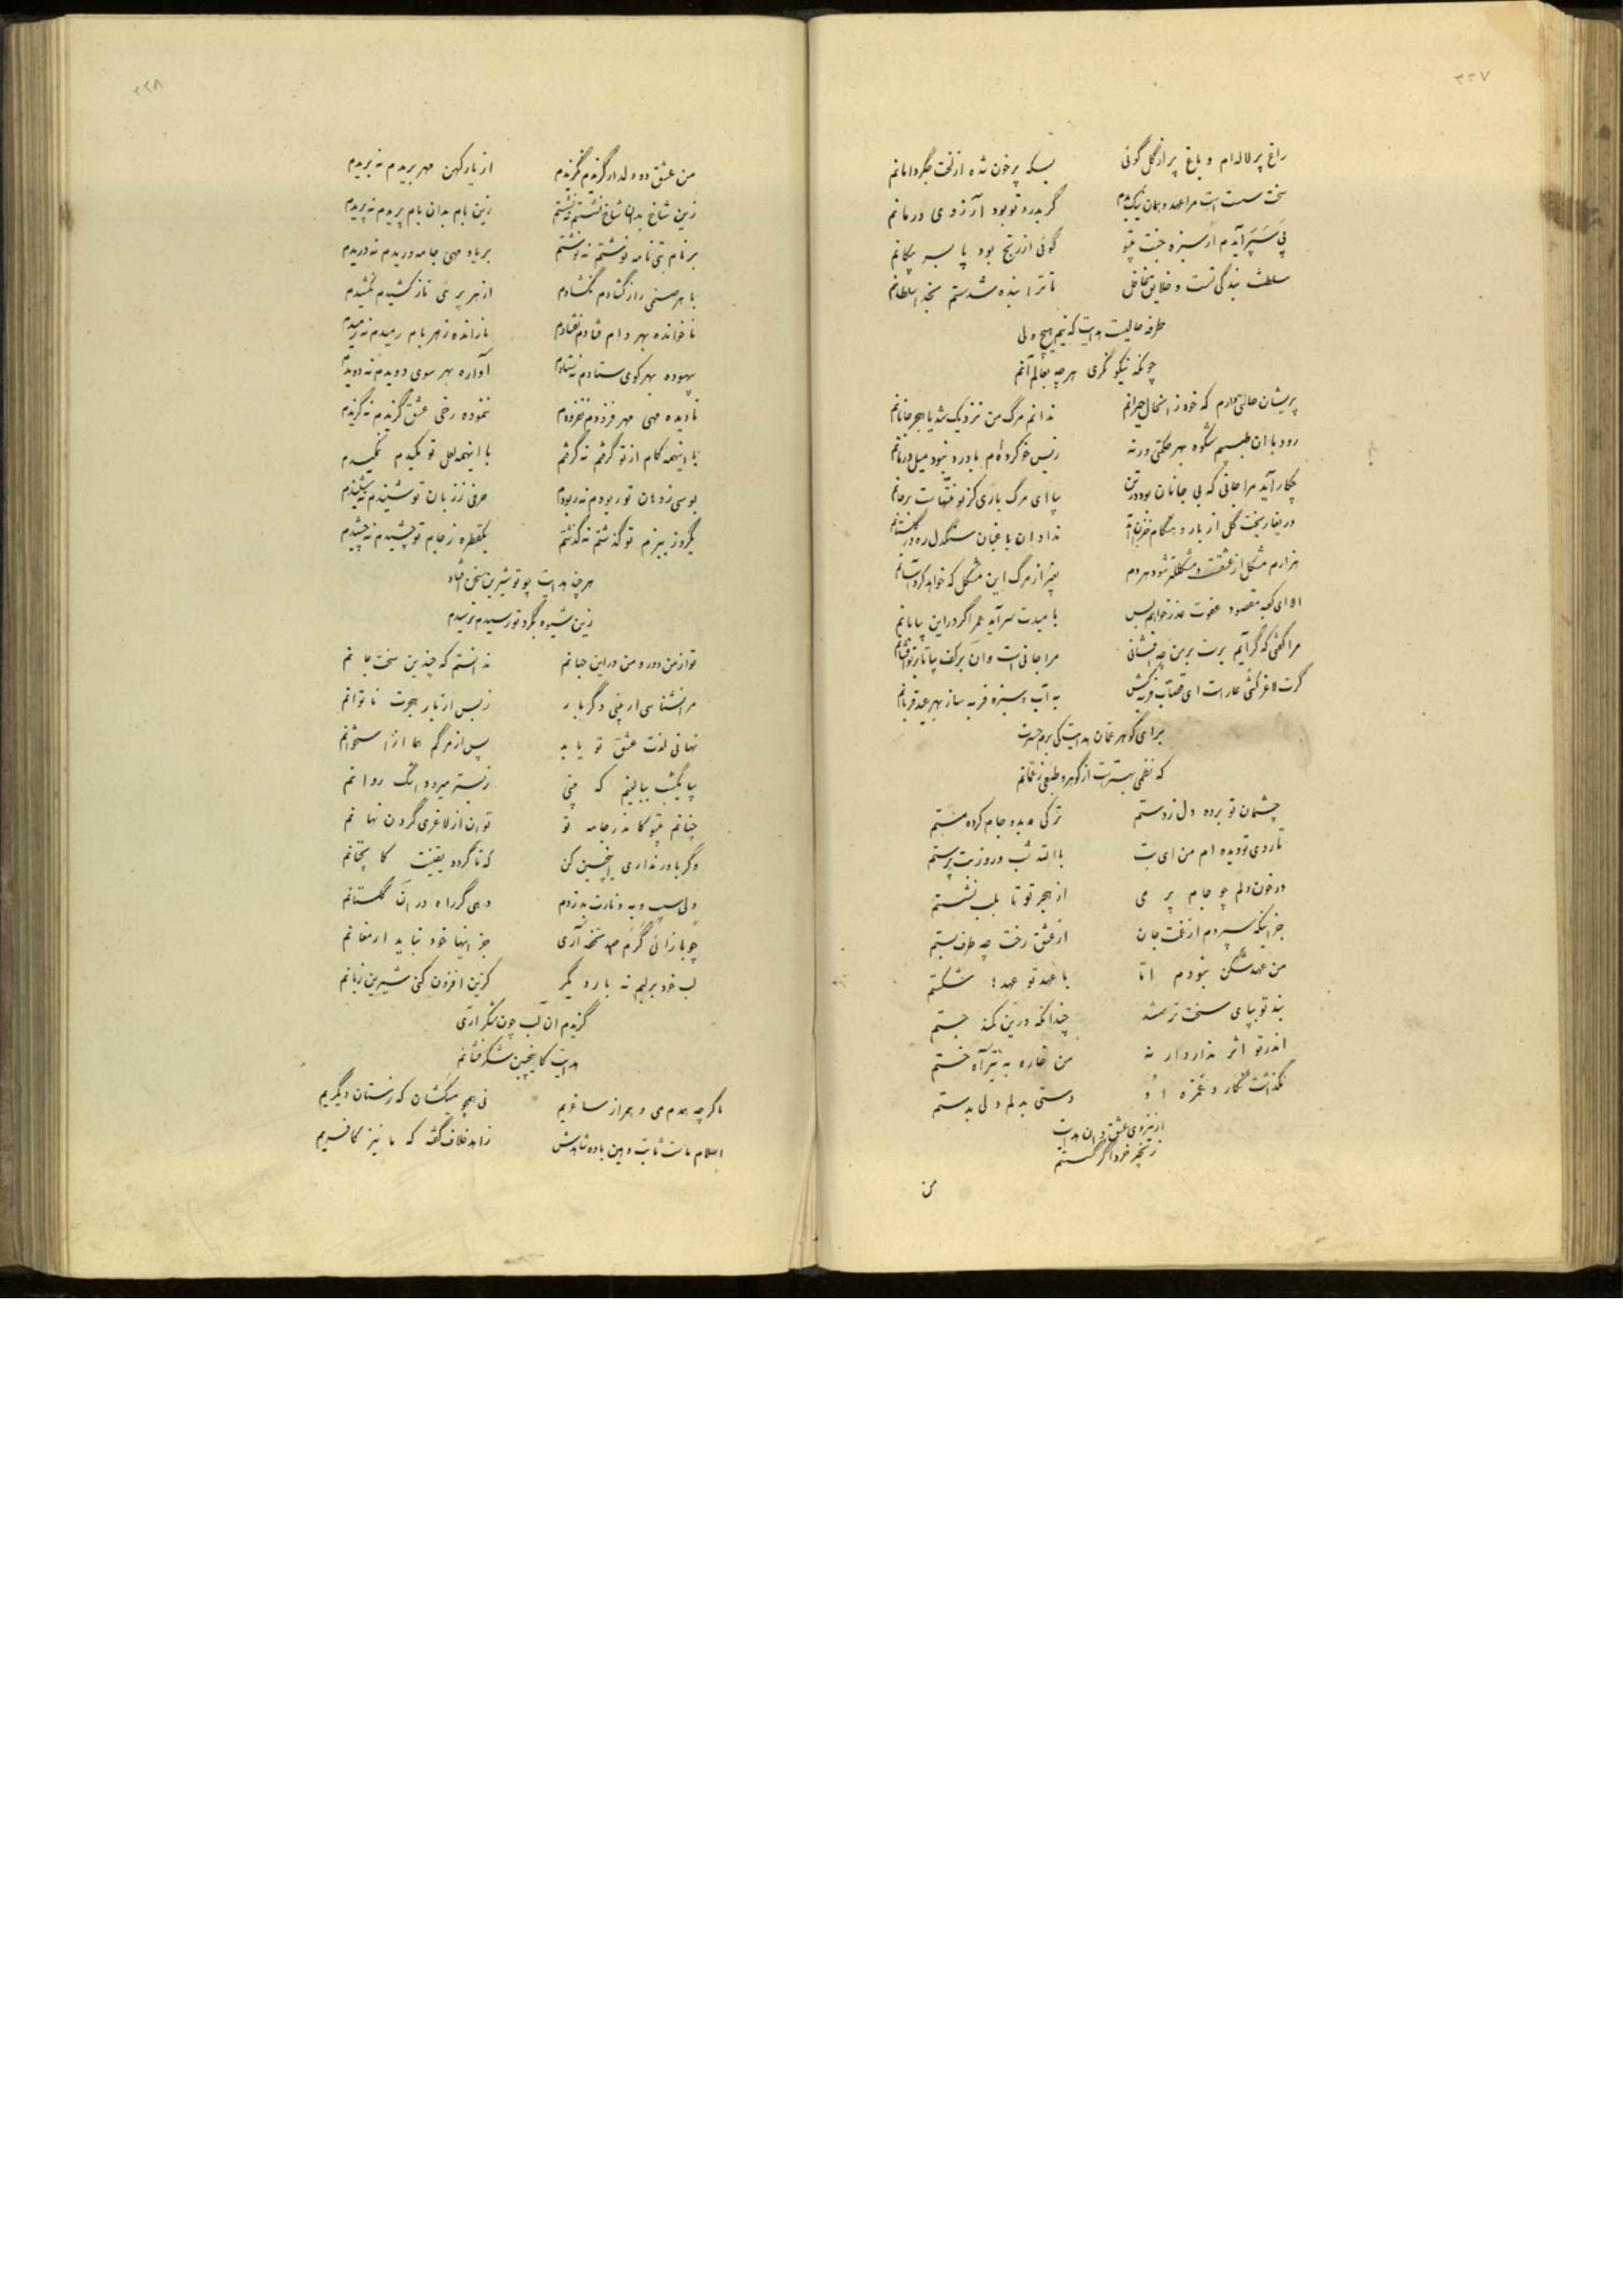 ۳۳۷
راغ پر لاله‌ام و باغ پر از گل گوئی بسکه پر خون شده از لخت جگر دامانم
سخت سست است مرا عهد و همان نیک بدم گر بدرد تو بود آرزوی درمانم
پی سپر آیدم ار سبزه جنت بیتو گوئی از رنج بود پا بسر پیکانم
سلطنت بندگی تست و خلایق غافل تا ترا بنده شدستم بخدا سلطانم
طرفه حالیست هدایت که نیم هیچ ولی
چونکه نیکو نگری هرچه بعالم آنم
پریشان حالتی دارم که خود ز انحال حیرانم ندانم مرگ من نزدیک شد یا هجر جانانم
رود با ان طبیبم شکوه بهر حکمتی ورنه ز بس خو کرده‌ام با درد نبود میل درمانم
چکار آید مرا جانی که بی جانان بود در تن بیا ای مرگ باری کز تو منتهاست بر جانم
دریغا ریخت گل از بار و هنگام خزان آمد نداد ان باغبان سنگدل ره در گلستانم
هزارم مشکل از عشقت و مشکلتر شود هر دم بغیر از مرگ این مشکل که خواهد کرد آسانم
الا ای کعبه مقصود عفوت عذر خواهم بس بامیدت سر آید عمر اگر در این بیابانم
مرا گفتی که گر آیم برت بر من چه افشانی مرا جانی است وان بر کف بیا تا بر تو افشانم
گرت لاغر کشی عار است ای قصاب فربه کش به آب و سبزه فربه ساز بهر عید قربانم
برای گوهر عمان هدایت کی برم حسرت
که نظمی بهتر است از گوهر و طبعی ز عمانم
چشمان تو برده دل ز دستم ترکی دو بدو جام کرده مستم
تا روی تو دیده ام من ای بت باالله شب و روز بت پرستم
در خون دلم چو جام پر می از هجر تو تا بلب نشستم
جز اینکه سپردم از غمت جان از عشق رخت چه طرف بستم
من عهد شکن نبودم اما با عهد تو عهدها شکستم
بند تو بپای سخت تر شد چندانکه درین کمند جستم
اندر تو اثر ندارد ار نه من خاره به تیر آه خستم
نگذاشت نگار و غمزه او دستی بدلم ولی بدستم
از نیروی عشق دان هدایت
زنجیر خرد اگر گسستم
من
۳۳۸
من عشق دو دلدار گزیدم نگزیدم از یار کهن مهر بریدم نه بریدم
زین شاخ بدان شاخ نشستم ننشستم زین بام بدان بام پریدم نه پریدم
بر نام بتی نامه نوشتم ننوشتم بر یاد مهی جامه دریدم نه دریدم
با هر صنمی راز گشادم نگشادم از هر پسری ناز کشیدم نکشیدم
ناخوانده بهر دام فتادم نفتادم نارانده ز هر بام رمیدم نه رمیدم
بیهوده بهر کوی ستادم نه ستادم آواره بهر سوی دویدم نه دویدم
نادیده مهی مهر فزودم نفزودم ننموده رخی عشق گزیدم نه گزیدم
با اینهمه کام از تو گرفتم نه گرفتم با اینهمه لعل تو مکیدم نمکیدم
بوسی ز دهان تو ربودم نه ربودم حرفی ز زبان تو شنیدم نه شنیدم
یکروز ببزم تو گذشتم نه گذشتم یکقطره ز جام تو چشیدم نه چشیدم
هر چند هدایت چو تو شیرین سخن افتاد
زین شیوه بگرد تو رسیدم نرسیدم
تو از من دور و من در این جهانم ندانستم که چندین سخت جانم
مرا نشناسی ار بینی دگر بار ز بس از بار هجرت ناتوانم
نهانی لذت عشق تو یابد پس از مرگم هما از استخوانم
بیا یکشب ببالینم که بینی ز بستر میرود اشک روانم
چنانم بیتو کاندر جامه تو توان از لاغری کردن نهانم
وگر باور نداری اینچنین کن که تا گردد یقینت کاینچنانم
ولی سیب و به و نارت بدزدم دهی گر راه در آن گلستانم
چو باز آئی گرم صد تحفه آری جز اینها خود نباید ارمغانم
لب خود بر لبم نه بار دیگر کزین افزون کنی شیرین زبانم
گزیدم ان لب چون شکر آری
هدایت کاینچنین شکر فشانم
ما گر چه همدم می و همراز ساغریم نی همچو میکشان که ز مستان دیگریم
اسلام ماست ثابت و این باده شاهدش زاهد خلاف گفته که ما نیز کافریم